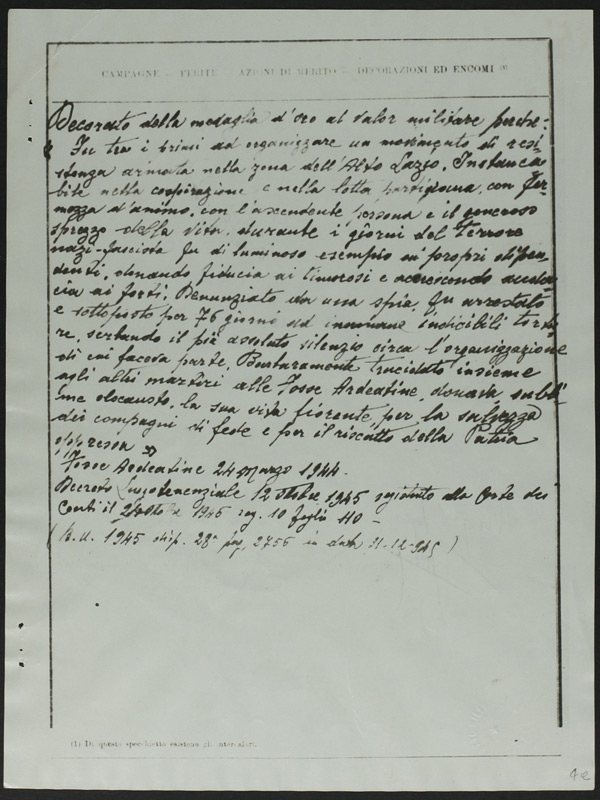 CAMPAGNE - FERITE - AZIONI DI MERITO - DECORAZIONI ED ENCOMI (1)
Decorato della medaglia d'oro al valor militare perchè:
Fu tra i primi ad organizzare un movimento di resi
stenza armata nella zona dell'Alto Lazio. Instanca
bile nella cospirazione e nella lotta partigiana, con fer
mezza d'animo, con l'ascendente persona e il generoso
sprezzo della vita, durante i giorni del terrore
nazi-fascista fu di luminoso esempio ai propri dipen
denti, donando fiducia ai timorosi e accrescendo auda
cia ai forti. Denunziato da una spia, fu arrestato
e sottoposto per 76 giorni ad inumane indicibili tortu
re, serbando il più assoluto silenzio circa l'organizzazione
di cui faceva parte. Barbaramente trucidato insieme
agli altri martiri alle Fosse Ardeatine, donava, subli
me olocausto, la sua vita fiorente per la salvezza
dei compagni di fede e per il riscatto della Patria
oppressa "
Fosse Ardeatine 24 marzo 1944.
Decreto Luogotenenziale 12 ottobre 1945 registrato alla Corte dei
Conti il 1945 reg. 10 foglio 110 -
(B.U. 1945 disp. 28ª pag. 2756 in data 31-12-945)
(1) Di questo specchietto esistono gli intercalari.